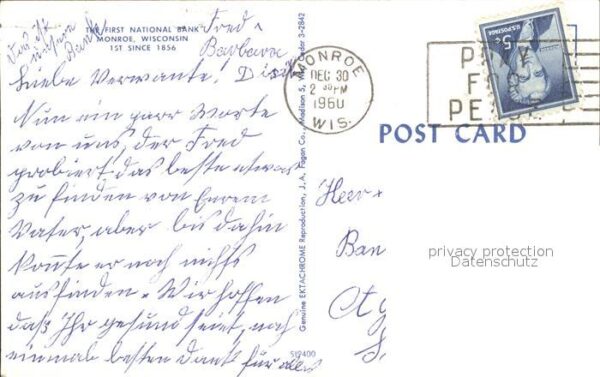 THE FIRST NATIONAL BANK
MONROE, WISCONSIN
1ST SINCE 1856
Fred
Barbara
Das ist
unsere
Banke
Liebe Verwante!
Nun ein paar Worte
von uns, der Fred
probiert das beste etwas
zu finden von Eurem
Vater, aber bis dahin
konnte er noch nichts
ausfinden. Wir hoffen
daß Ihr gesund seiet, noch
einmal besten Dank für alles
Genuine EKTACHROME Reproduction, J. A. Fagan Co., Madison 5, Wis. Order 3-2842
S12400
MONROE
DEC 30
2 30 PM
1960
WIS.
U.S. POSTAGE
5¢
PRAY
FOR
PEACE
POST CARD
Heer
Ban
privacy protection
Datenschutz